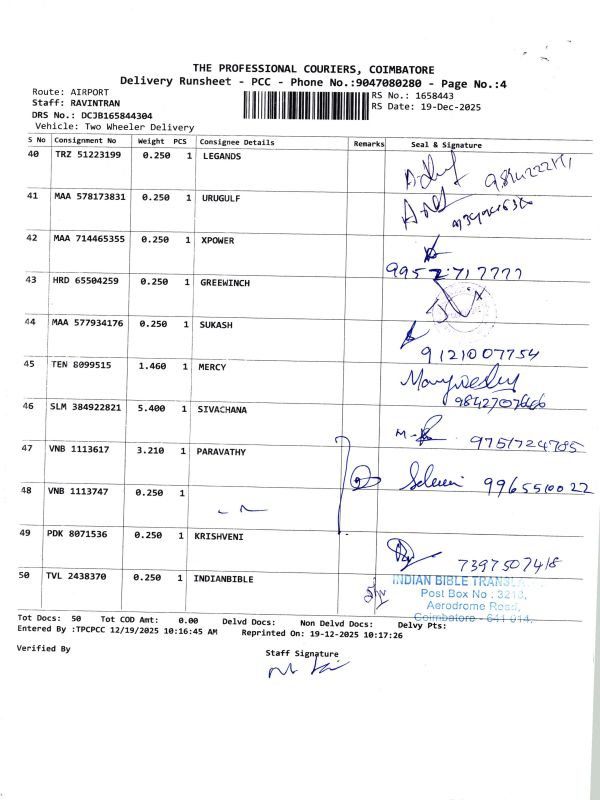 THE PROFESSIONAL COURIERS, COIMBATORE
Delivery Runsheet - PCC - Phone No.:9047080280 - Page No.:4
Route: AIRPORT
RS No.: 1658443
Staff: RAVINTRAN
RS Date: 19-Dec-2025
DRS No.: DCJB165844304
Vehicle: Two Wheeler Delivery
S No Consignment No Weight PCS Consignee Details Remarks Seal & Signature
40 TRZ 51223199 0.250 1 LEGANDS
41 MAA 578173831 0.250 1 URUGULF
42 MAA 714465355 0.250 1 XPOWER
9952717777
43 HRD 65504259 0.250 1 GREEWINCH
44 MAA 577934176 0.250 1 SUKASH
9121007754
45 TEN 8099515 1.460 1 MERCY
46 SLM 384922821 5.400 1 SIVACHANA
9751724785
47 VNB 1113617 3.210 1 PARAVATHY
9965510022
48 VNB 1113747 0.250 1
49 PDK 8071536 0.250 1 KRISHVENI
7397507418
50 TVL 2438370 0.250 1 INDIANBIBLE
INDIAN BIBLE
Post Box No : 3213,
Aerodrome Road,
Coimbatore - 641 014.
Tot Docs: 50 Tot COD Amt: 0.00 Delvd Docs: Non Delvd Docs: Delvy Pts:
Entered By :TPCPCC 12/19/2025 10:16:45 AM Reprinted On: 19-12-2025 10:17:26
Verified By
Staff Signature